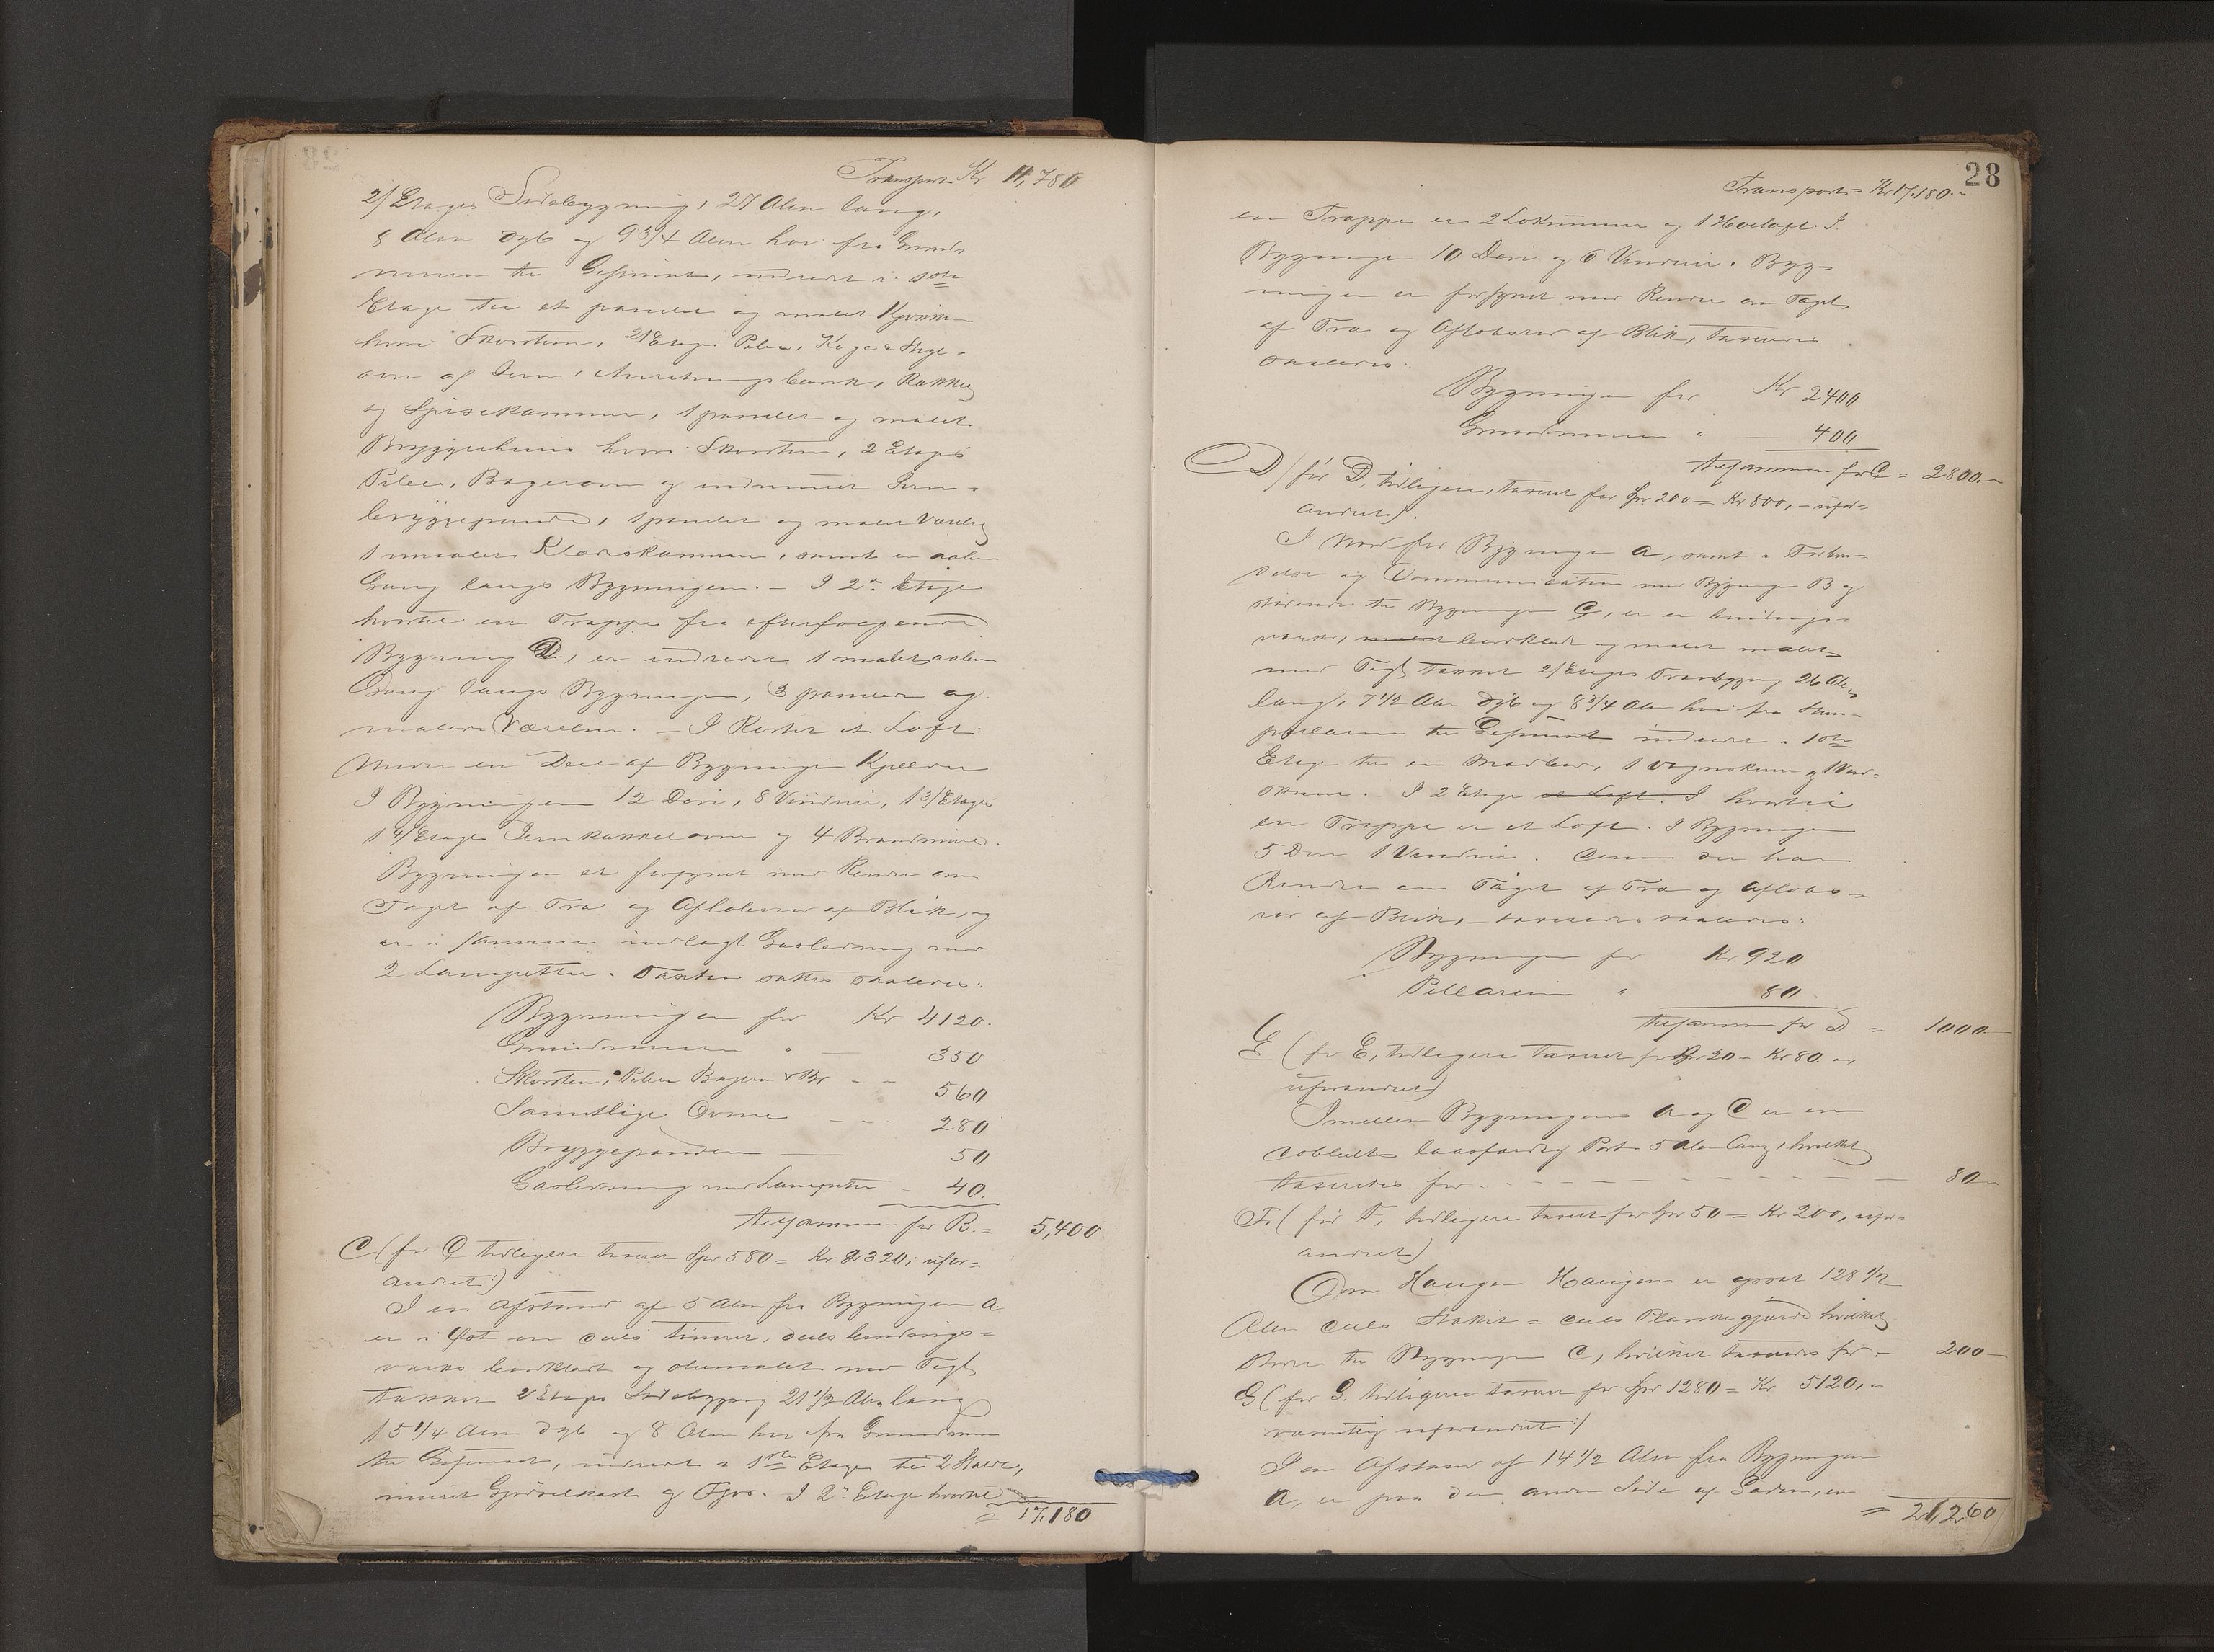 Transport Kr 11,780
2/Etages Sidebygning, 27 Alen lang,
8 Alen dyb og 9 3/4 Alen høi fra Grund-
muren til Gesimsen, indredet i 1ste
Etage til et panelet og malet Kjøkken
hvori Skorsten, 2/Etages Piber, Koge & Stege-
ovn af Jern, Anretningsbænk, Rækker
og Spisekammer, 1 panelet og malet
Bryggerhuus hvori Skorsten, 2 Etages
Piber, Bagerovn og indmuret Jern-
bryggepande, 1 panelet og malet Værelse
1 umalet Klædeskammer, samt en aaben
Gang langs Bygningen. – I 2den Etage
hvortil en Trappe fra efterfølgende
Bygning D, er indredet 1 malet aaben
Gang langs Bygningen, 3 panelede og
malede Værelser. – I Røstet et Loft.
Under en Deel af Bygningen Kjelder
I Bygningen 12 Døre, 8 Vinduer, 1 3/Etages
1 4/Etages Jernkakkelovn og 4 Brandmure.
Bygningen er forsynet med Render om
Taget af Træ og Afløbsrør af Blik, og
er i samme indlagt Gasledning med
2 Lampetter. Taxten sættes saaledes:
Bygningen for Kr 4120.
Grundmuren " — 350
Skorsten, Piber Bagerovn & Br — 560
Samtlige Ovne — 280
Bryggepanden — 50
Gasledning med Lampetter — 40.
tilsammen for B. = 5,400
C (før C tidligere taxeret Spr 580 = Kr 2320, ufor-
andret:)
I en Afstand af 5 Alen fra Bygningen A
er i Øst en deels tømret, deels bindings-
værks bordklædt og oliemalet med Tegl
tækket 2 Etages Sidebygning 21 1/2 Alen lang
15 1/4 Alen dyb og 8 Alen høi fra Grundmuren
til Gesimsen, indredet i 1ste Etage til 2 Stalde,
muret Gjødselkast og Fjøs. I 2den Etage hvortil
= 17,180
28
Transport = Kr 17,180.-
en Trappe er 2 Lokummer og 1 Høeloft. I
Bygningen 10 Døre og 6 Vinduer. Byg-
ningen er forsynet med Render om Taget
af Træ og Afløbsrør af Blik, taxeres
saaledes:
Bygningen for Kr 2400
Grundmuren " — 400
tilsammen for C = 2800.-
D/ før D, tidligere, taxeret for Spr 200 = Kr 800, - ufor-
andret).
I Nord for Bygningen A, samt i Forbin-
delse og Communication med Bygningen B og
stødende til Bygningen C, er en bindings-
værks, malet bordklædt og malet malet
med Tegl tækket 2/Etages Træbygning 26 Alen
lang, 7 1/2 Alen dyb og 8 3/4 Alen høi fra Steen-
pillarerne til Gesimset indredet i 1ste
Etage til en Madbod, 1 Vognskuur og 1 Ved-
skuur. I 2 Etage et Loft. I hvortil
en Trappe er et Loft. I Bygningen
5 Døre 1 Vindue. Denne der har
Render om Taget af Træ og Afløbs-
rør af Blik, – taxeredes saaledes:
Bygningen for Kr 920
Pillarerne " 80
tilsammen for D = 1000.-
E (før E, tidligere taxeret for Spr 20 = Kr 80.-,
uforandret)
Imellem Bygningerne A og C er en
dobbelt laasfærdig Port 5 Alen lang, hvilket
taxeredes for - - - - 80.-
F. (før F, tidligere taxeret for Spr 50 = Kr 200, ufor-
andret)
Om Haugen Haugen er opsat 128 1/2
Alen deels Stakit = deels Plankegjærde hvilket
støder til Bygningen C, hvilket taxeredes for — 200 —
G (før G. tidligere taxeret for Spr 1280 = Kr 5120,-
væsentlig uforandret:)
I en Afstand af 14 1/2 Alen fra Bygningen
A, er paa den anden Side af Gaden, en
= 21,260